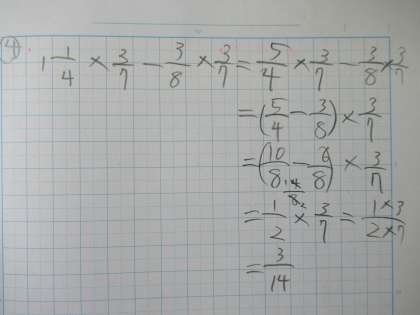 ④ 1 1/4 × 3/7 − 3/8 × 3/7 = 5/4 × 3/7 − 3/8 × 3/7
= (5/4 − 3/8) × 3/7
= (10/8 − 6/8) × 3/7
4/8
= 1/2 × 3/7 = 1×3/2×7
= 3/14